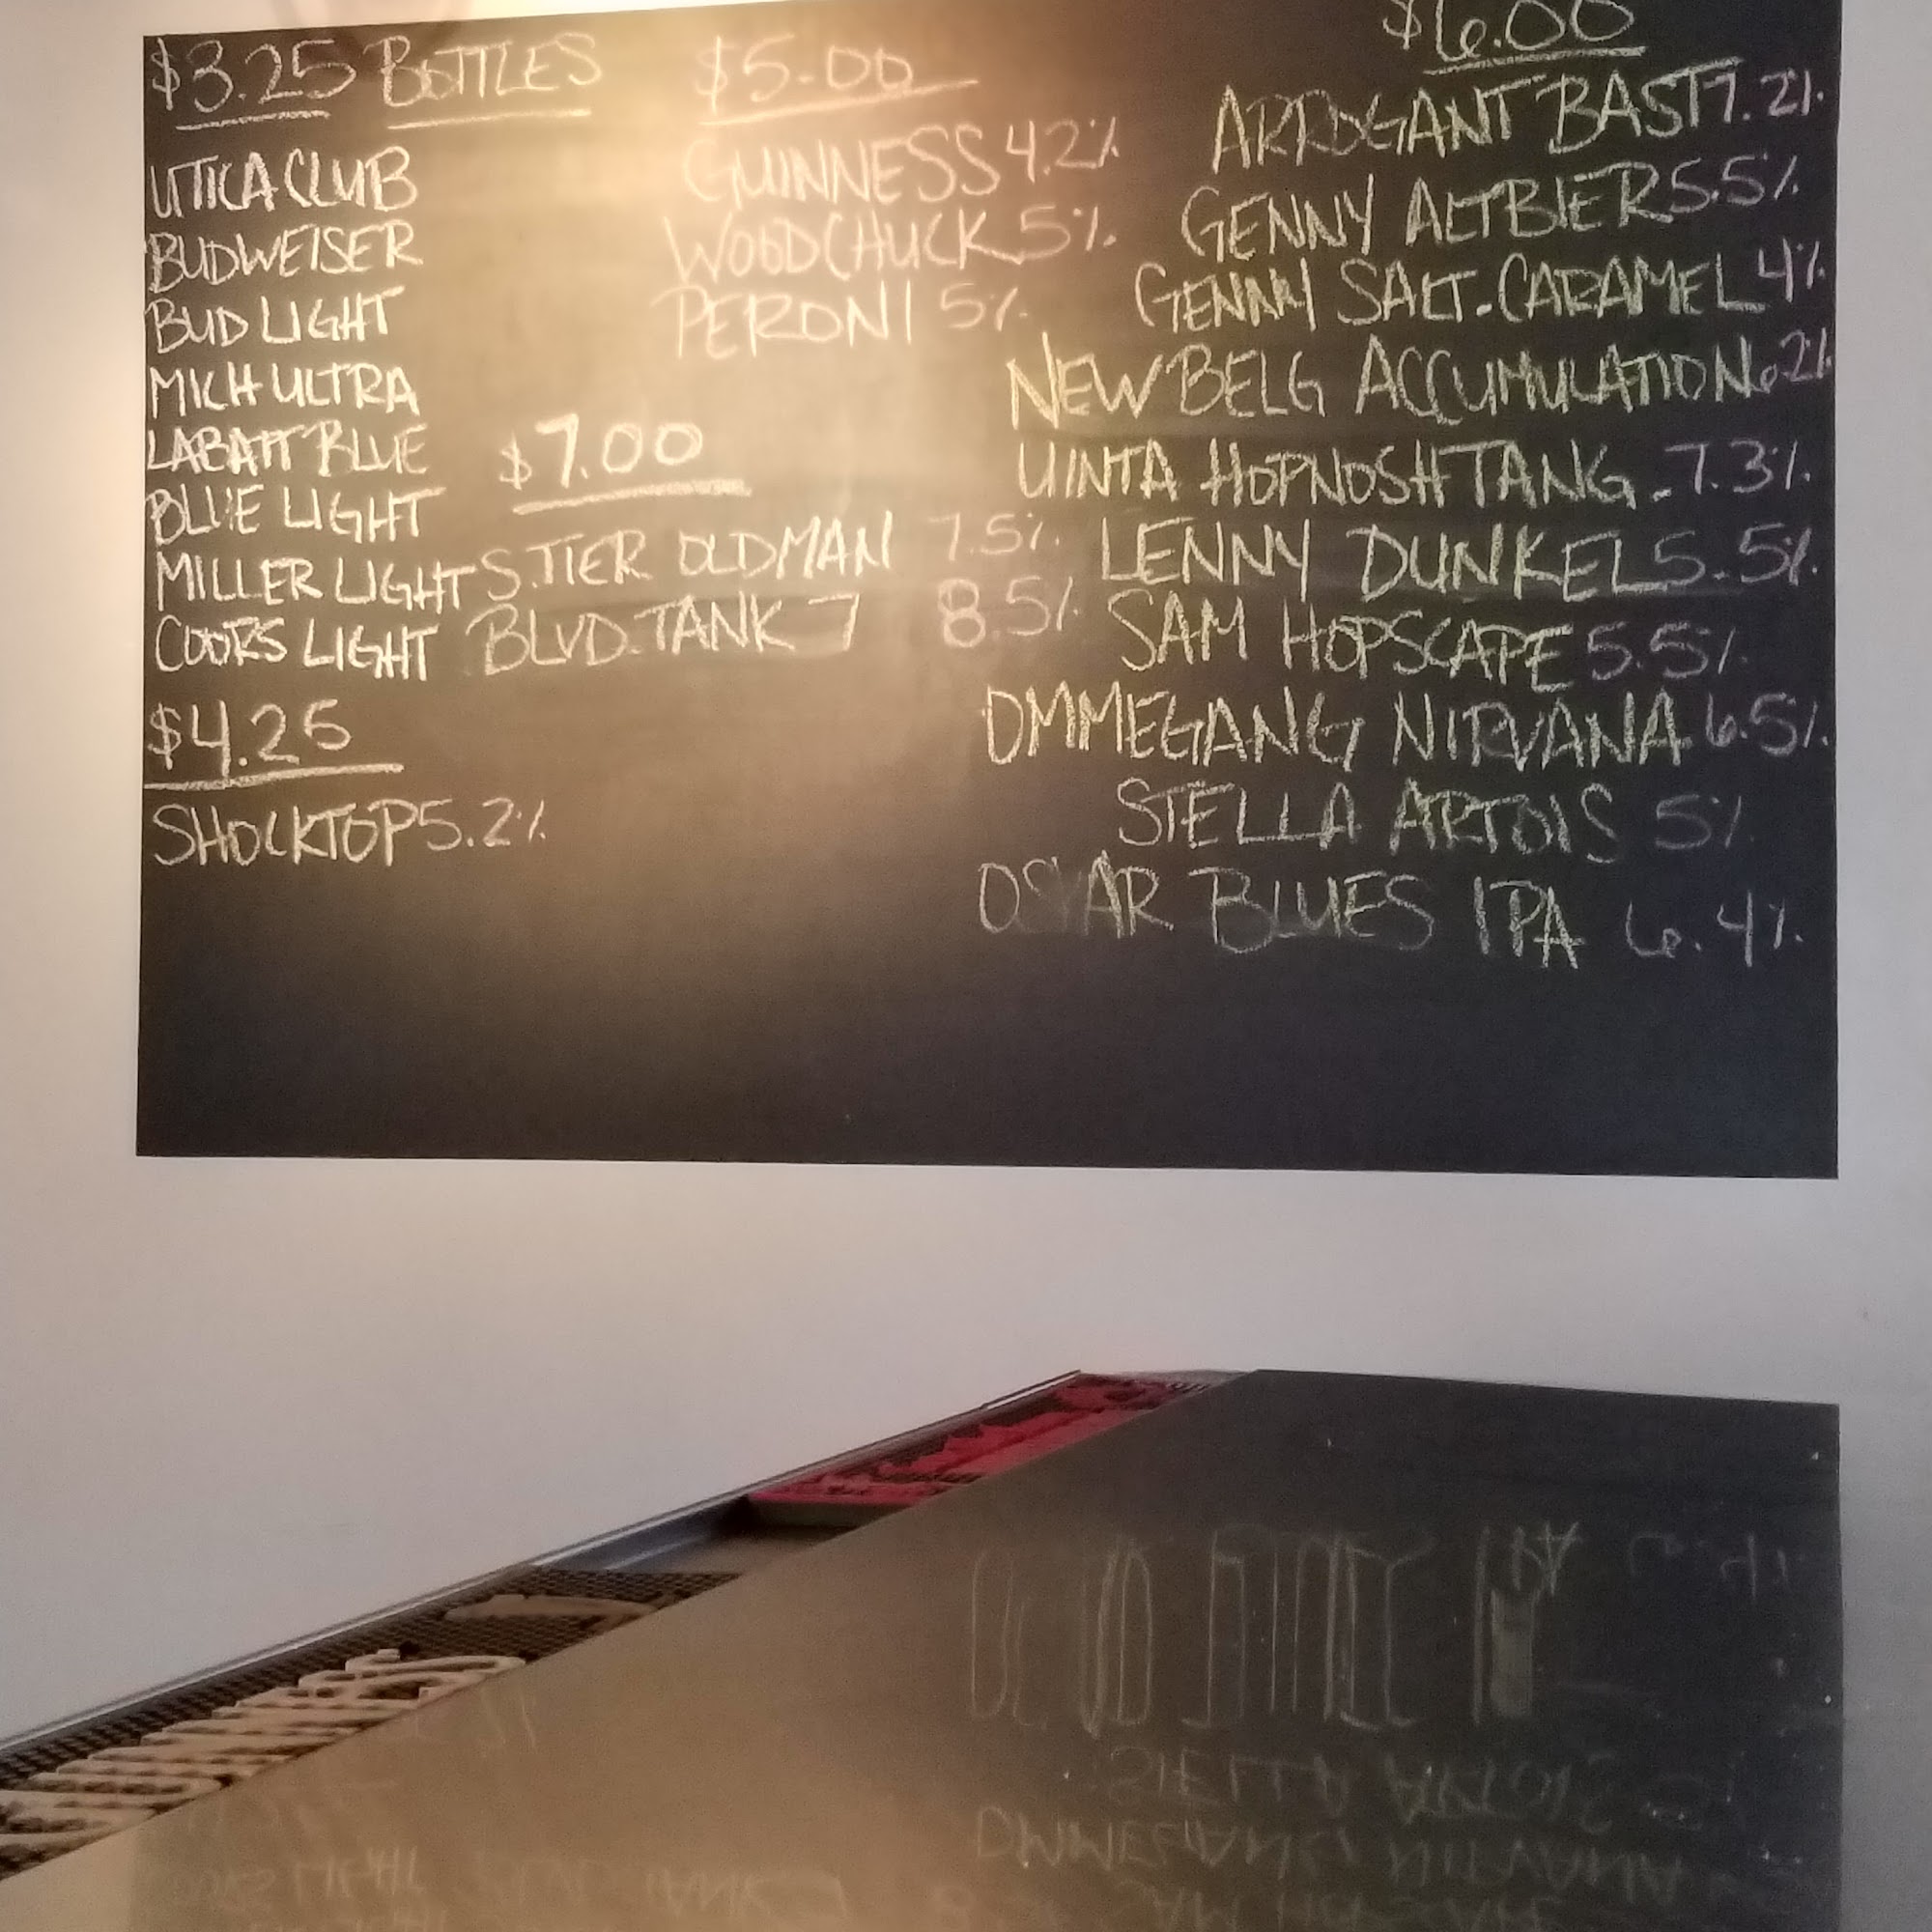 $3.25 BOTTLES
UTICA CLUB
BUDWEISER
BUD LIGHT
MICH ULTRA
LABATT BLUE
BLUE LIGHT
MILLER LIGHT
COORS LIGHT
$4.25
SHOCKTOP 5.2%
$5.00
GUINNESS 4.2%
WOODCHUCK 5%
PERONI 5%
$7.00
S.TIER OLDMAN 7.5%
BLVD. TANK 7 8.5%
$6.00
ARROGANT BAST 7.2%
GENNY ALTBIER 5.5%
GENNY SALT-CARAMEL 4%
NEW BELG ACCUMULATION 6.2%
UINTA HOPNOSH TANG - 7.3%
LENNY DUNKEL 5.5%
SAM HOPSCAPE 5.5%
OMMEGANG NIRVANA 6.5%
STELLA ARTOIS 5%
BLUES IPA 6.4%